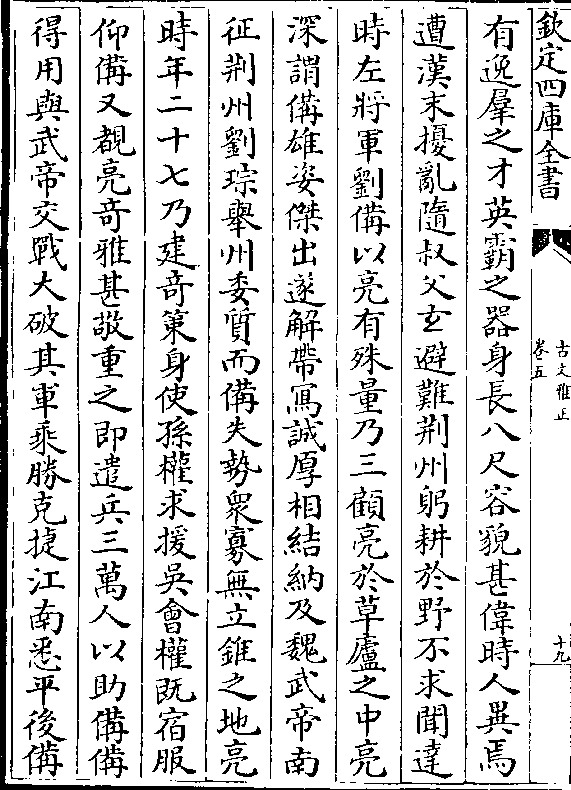 欽定四庫全書
古文雅正
卷五
十九
有逸羣之才英霸之器身長八尺容貌甚偉時人異焉
遭漢末擾亂隨叔父玄避難荆州躬耕於野不求聞達
時左將軍劉備以亮有殊量乃三顧亮於草廬之中亮
深謂備雄姿傑出遂解帶寫誠厚相結納及魏武帝南
征荆州劉琮舉州委質而備失勢衆寡無立錐之地亮
時年二十七乃建竒策身使孫權求援吳會權既宿服
仰備又覩亮竒雅甚敬重之即遣兵三萬人以助備備
得用與武帝交戰大破其軍乘勝克捷江南悉平後備